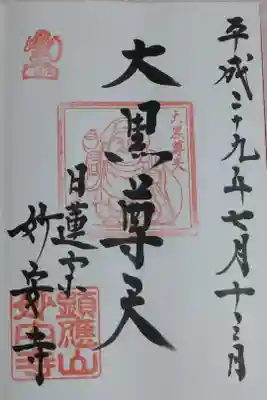 平成二十九年七月十三日
大黒尊天
大黒尊天
日蓮宗
妙安寺
顕應山
妙安寺